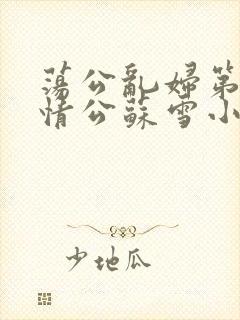 蕩公亂婦第
情公蘇雪小
少地瓜